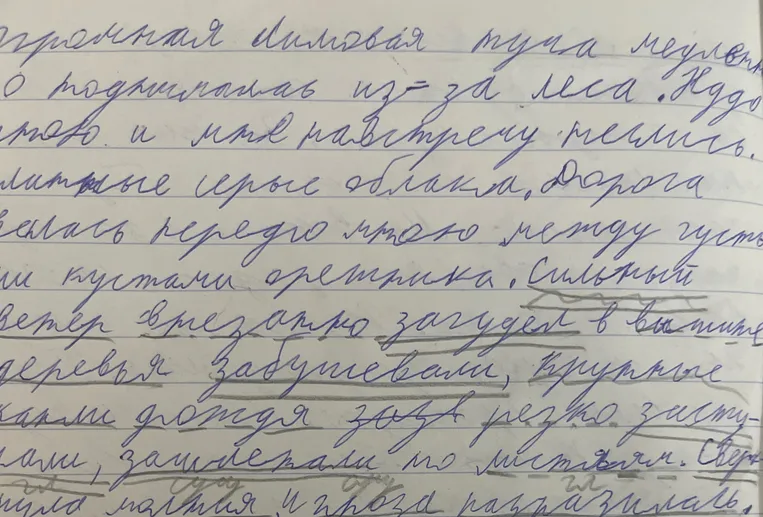 огромная лимовая туча медленн
о поднималась из-за леса. Надо
мною и мне навстречу неслись
латные серые облака. Дорога
велась передо мною между густы
ми кустами орешника. Сильный
ветер внезапно загудел в вышине
деревья забушевали, крупные
капли дождя резко засту-
чали, зашлепали по листьям. Сверк
нула молния, и гроза разразилась.
гл сущ сущ гл